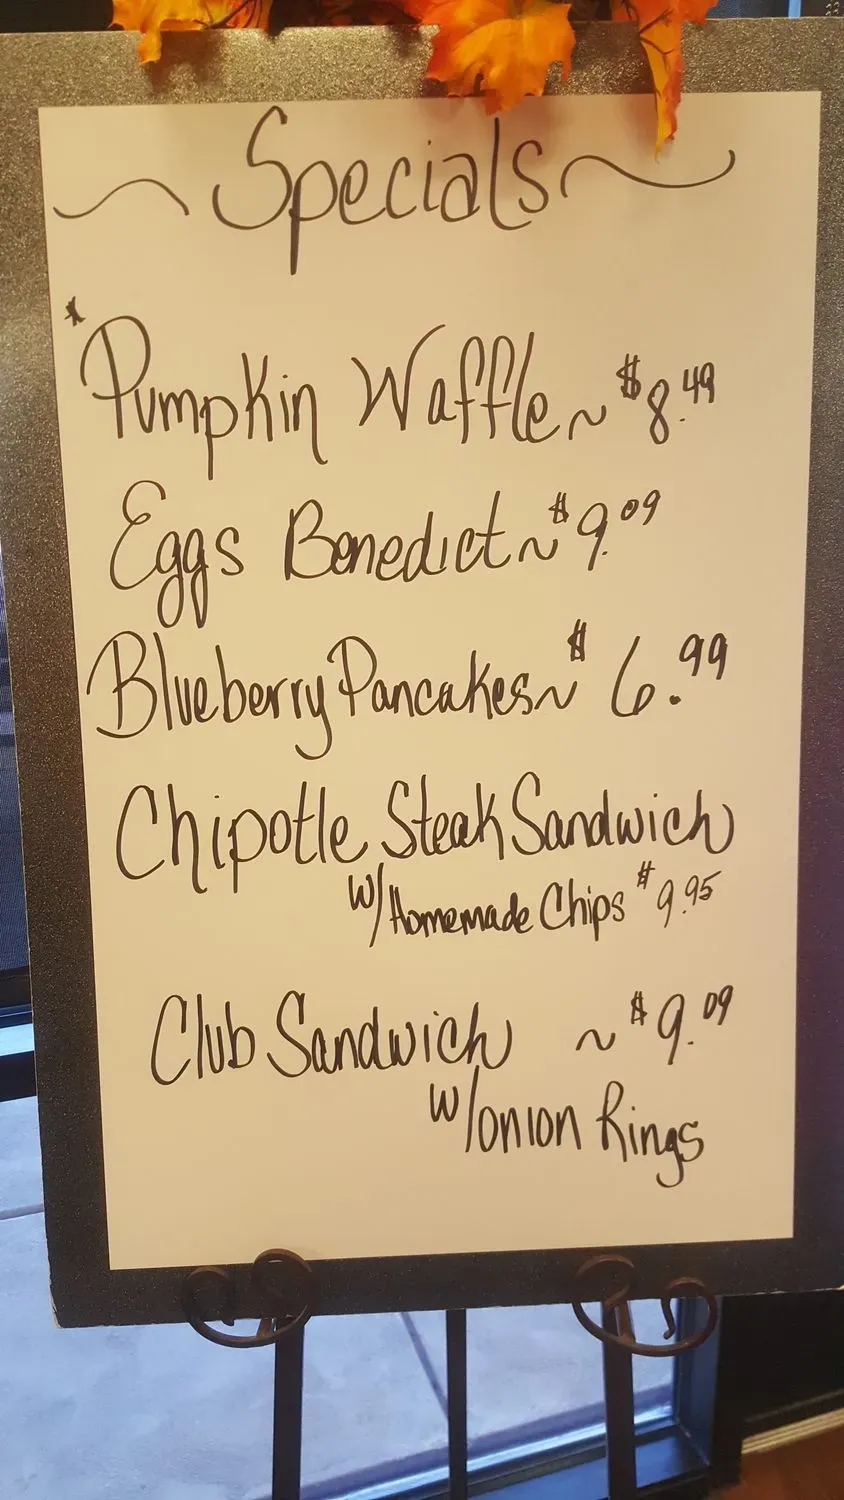 ~ Specials ~
*Pumpkin Waffle ~ $8.49
Eggs Benedict ~ $9.09
Blueberry Pancakes ~ $6.99
Chipotle Steak Sandwich
w/Homemade Chips $9.95
Club Sandwich ~ $9.09
w/onion Rings